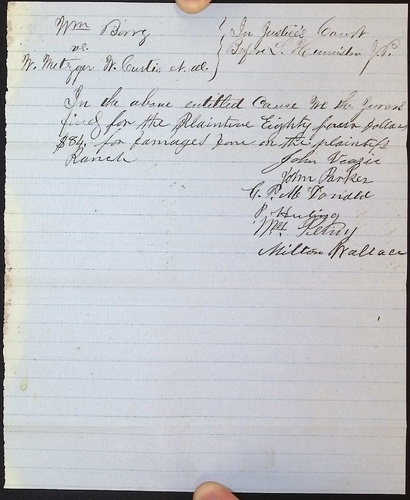 Wm Berry } In Justice's Court
vs. } Before L. Hermiston J.P.
W. Metzger W. Curtis et. al.
In the above entitled Cause We the Jurors
find for the Plaintive Eighty four Dollars
$84. for damages done on the plaintifs
Ranch
John Veazie
John Parker
C. P. McDonald
P. Huling
Wm
Milton Wallace